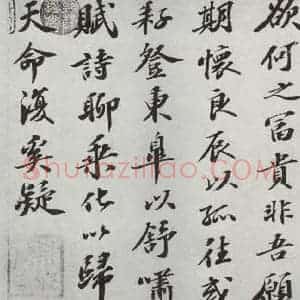 欲何之冨貴非吾願
期懷良辰以孤往或
耔登東皐以舒嘯
賦詩聊乘化以歸
天命復奚疑
Shufaziliao.COM